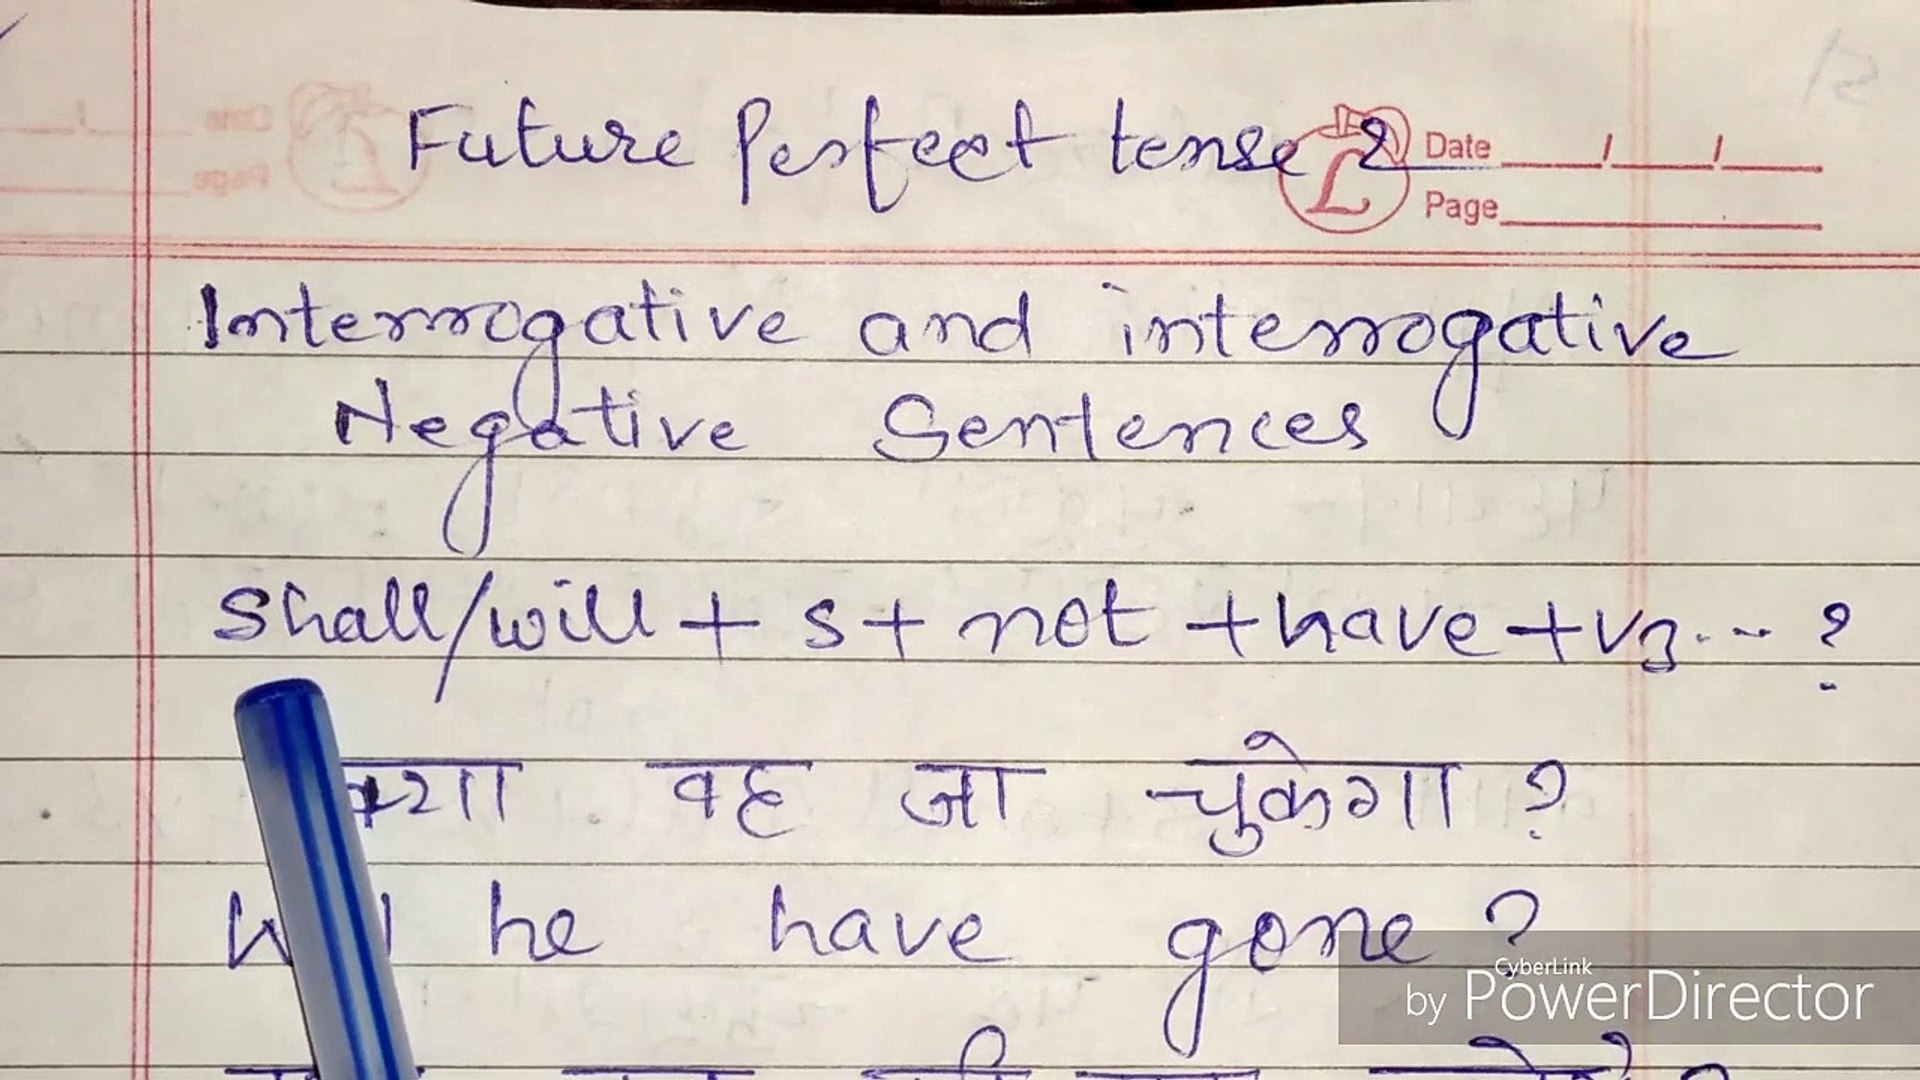 Future Perfect tense 2
Date / /
Page
Interrogative and interrogative
Negative Sentences
Shall/will + s + not + have + v3... ?
क्या वह जा चुकेगा ?
Will he have gone ?
CyberLink
by PowerDirector